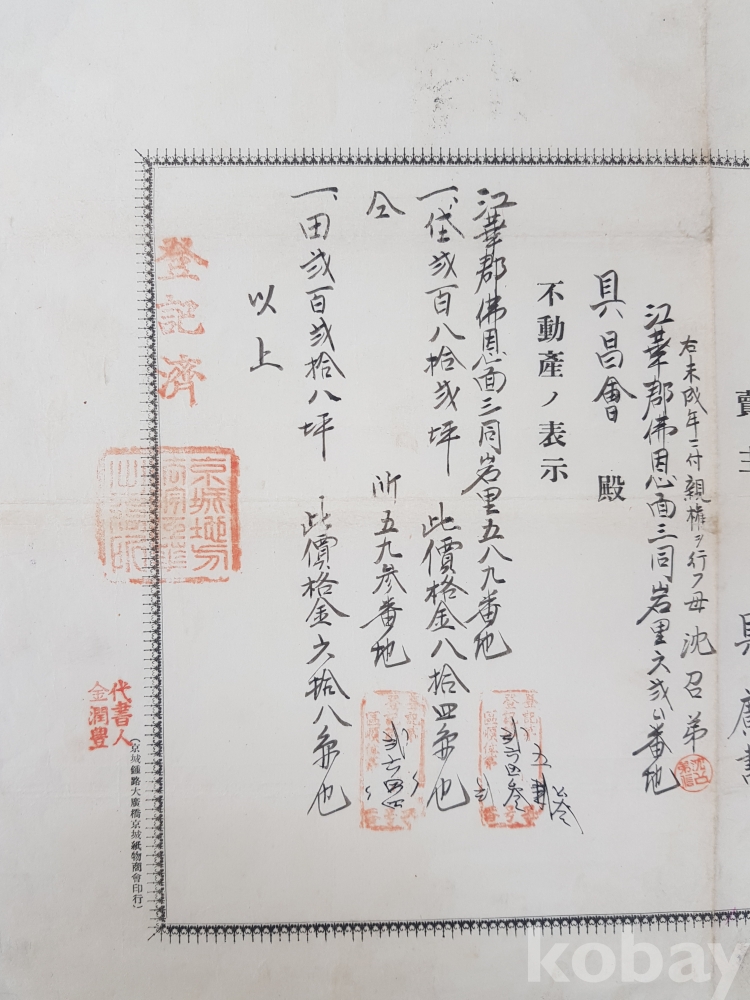 賣主 具
右未成年ニ付親權ヲ行フ母 沈召弟
江華郡佛恩面三同岩里六弐八番地
具昌會 殿
不動産ノ表示
江華郡佛恩面三同岩里五八九番地
一、垈弐百八拾弐坪 此價格金八拾四円也
仝 所五九参番地
一、田弐百弐拾八坪 此價格金六拾八円也
以上
登記濟
代書人
金潤豊
(京城鍾路大廣橋京城紙物商會印行)
kobay